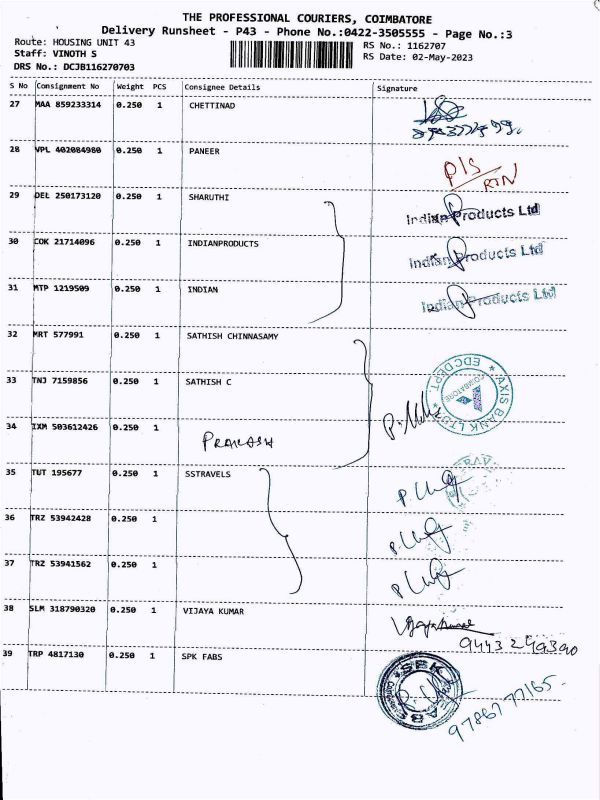 THE PROFESSIONAL COURIERS, COIMBATORE
Delivery Runsheet - P43 - Phone No.:0422-3505555 - Page No.:3
Route: HOUSING UNIT 43
RS No.: 1162707
Staff: VINOTH S
RS Date: 02-May-2023
DRS No.: DCJB116270703
S No Consignment No Weight PCS Consignee Details Signature
27 MAA 859233314 0.250 1 CHETTINAD
28 VPL 402084980 0.250 1 PANEER
P/S
RTN
29 DEL 250173120 0.250 1 SHARUTHI
Indian Products Ltd
30 COK 21714096 0.250 1 INDIANPRODUCTS
Indian Products Ltd
31 MTP 1219509 0.250 1 INDIAN
Indian Products Ltd
32 MRT 577991 0.250 1 SATHISH CHINNASAMY
33 TNJ 7159856 0.250 1 SATHISH C
AXIS BANK LTD * EDC DEPT. *
COIMBATORE
34 IXM 503612426 0.250 1
PRAKASH
35 TUT 195677 0.250 1 SSTRAVELS
36 TRZ 53942428 0.250 1
37 TRZ 53941562 0.250 1
38 SLM 318790320 0.250 1 VIJAYA KUMAR
Vijayakumar
9443249390
39 TRP 4817130 0.250 1 SPK FABS
9786777165